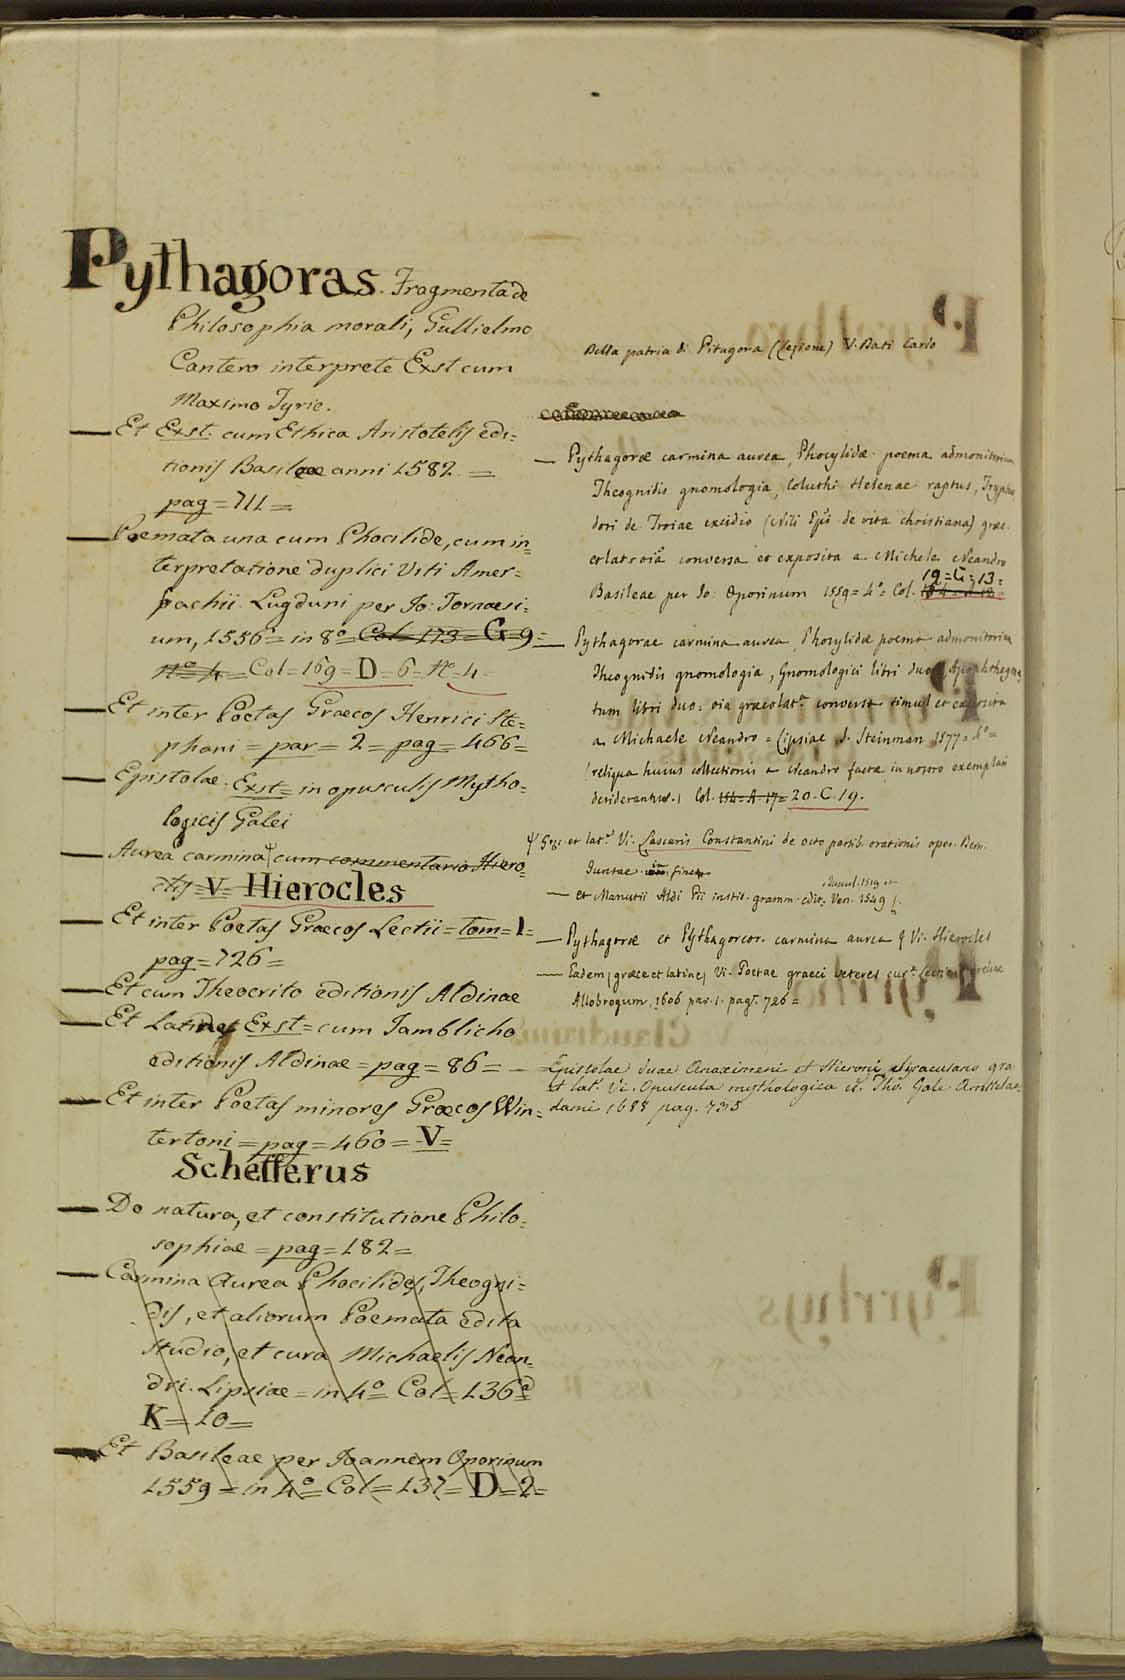 Pythagoras. Fragmenta de
Philosophia morali, Gullielmo
Cantero interprete Exst cum
Maximo Tyrio.
Et Exst. cum Ethica Aristotelis edi=
tionis Basileae anni 1582 =
pag = 711 =
Poemata una cum Phocilide, cum in=
terpretatione duplici Viti Amer=
pachii. Lugduni per Jo: Tornaesi=
um, 1556 = in 8o = Col = 173 = G = 9 =
No 4 = Col = 169 = D = 6 = No = 4
Et inter Poetas Graecos Henrici Ste=
phani = par = 2 = pag = 466 =
Epistolae. Exst = in opusculis Mytho=
logicis Galei
Aurea carmina cum commentario Hiero=
clis = V = Hierocles
Et inter Poetas Graecos Lectii = tom = 1 =
pag = 726 =
Et cum Theocrito editionis Aldinae
Et Latine Exst = cum Jamblicho
editionis Aldinae = pag = 86 =
Et inter Poetas minores Graecos Win=
tertoni = pag = 460 = V =
Schefferus
De natura, et constitutione Philo=
sophiae = pag = 182 =
Carmina Aurea Phocilides, Theogni=
dis, et aliorum Poemata edita
studio, et cura Michaelis Nean=
dri. Lipsiae = in 4o Col = 136 =
K = 10 =
Et Basileae per Joannem Oporinum
1559 = in 4o = Col = 137 = D = 2 =
Della patria di Pitagora (lezione) V. Dati Carlo
Pythagorae carmina aurea, Phocylidae poema admonitorium
Theognidis gnomologia, Coluthi Helenae raptus, Tryphio
dori de Troiae excidio (Nili Epi de vita christiana) graece
et lat oia conversa et exposita a Michele Neandro
Basileae per Jo: Oporinum 1559 = 4o = Col. 19 = G = 13 =
Pythagorae carmina aurea, Phocylidae poema admonitorium
Theognidis gnomologia, Gnomologici libri duo, Apophthegma
tum libri duo: oia graecolat. conversa simul et exposita
a Michaele Neandro = Lipsiae J. Steinman 1577 = 4o =
(reliqua huius collectionis a Neandro factae in nostro exemplari
desiderantur.) Col. 154 = A. 17 = 20. C. 19.
et lat. Vi. Lascaris Constantini de octo partib. orationis oper. Bern.
Juntae in fine
et Manutii Aldi Pii instit. gramm. edit. Ven. 1549
Pythagorae et Pythagoreor. carmina aurea Vi. Hierocles
Eadem (graece et latine) Vi. Poetae graeci veteres cur. Lectii Aureliae
Allobrogum, 1606 par. 1. pag. 726 =
Epistolae duae Anaximeni et Hieroni Syracusano gra
et lat. Vi. Opuscula mythologica ex. Tho. Gale Amstelae
dami 1688 pag. 735